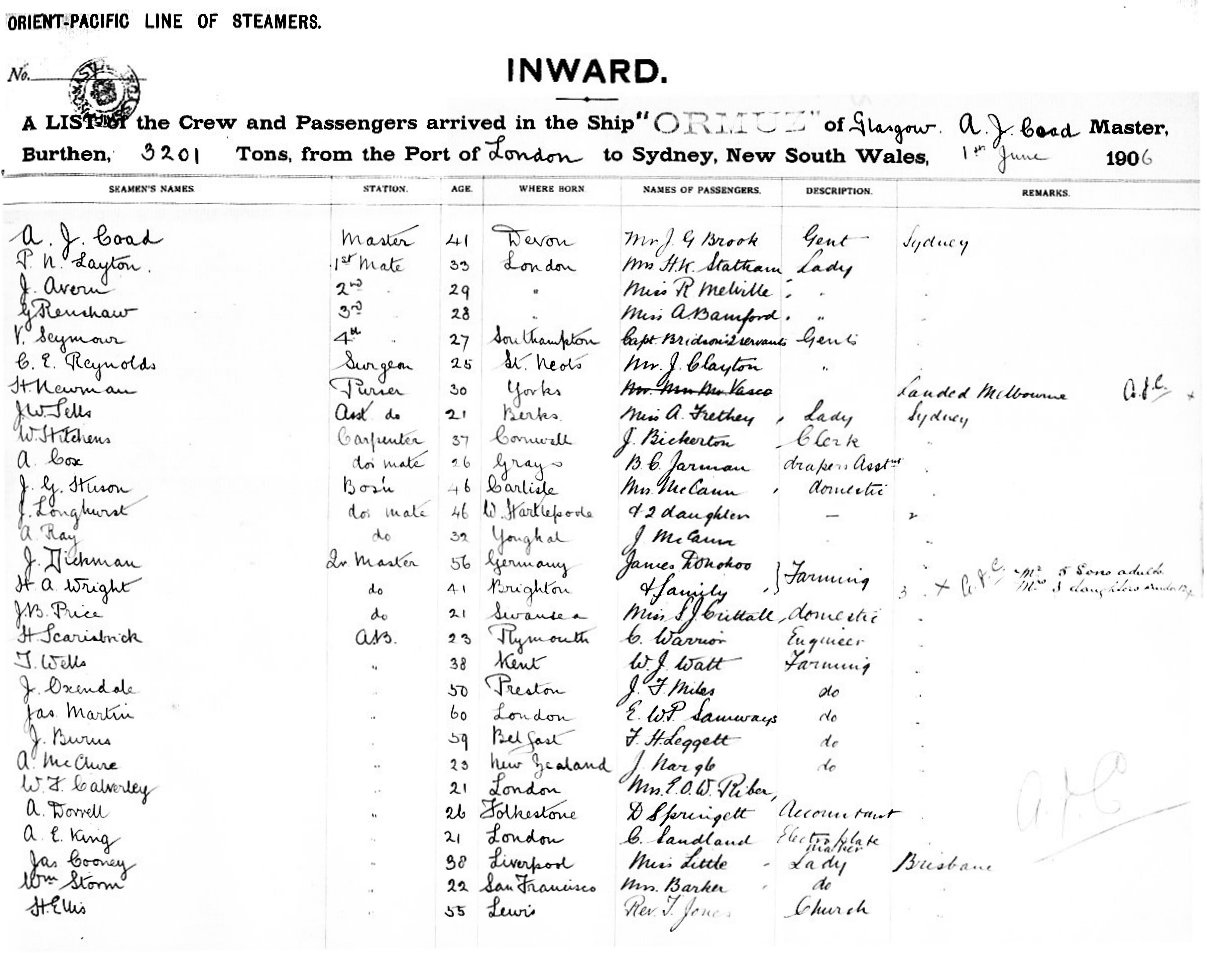 ORIENT-PACIFIC LINE OF STEAMERS.
No.
INWARD.
A LIST of the Crew and Passengers arrived in the Ship "ORMUZ" of Glasgow. A. J. Coad Master,
Burthen, 3201 Tons, from the Port of London to Sydney, New South Wales, 1st June 1906
SEAMEN'S NAMES. STATION. AGE. WHERE BORN. NAMES OF PASSENGERS. DESCRIPTION. REMARKS.
A. J. Coad Master 41 Devon Mr J. G Brook Gent Sydney
P. N. Layton. 1st Mate 33 London Mrs H. K. Statham Lady
J. Avern 2nd 29 " Miss R Melville "
G Renshaw 3rd 28 " Miss A. Bamford "
V. Seymour 4th 27 Southampton Capt Bridson 2 servants Gents
C. E. Reynolds Surgeon 25 St. Neots Mr. J. Clayton "
H Newman Purser 30 Yorks Vasco Landed Melbourne A.J.C. x
J W. Sells Asst do 21 Berks. Miss A. Frethey Lady Sydney
W. Hitchens Carpenter 37 Cornwall J. Bickerton Clerk
A. Cox do's mate 26 Grays B. C. Jarman drapers Asst
J. G. Bos'n 46 Carlisle Mrs. McCann domestic
J. Longhurst do's mate 46 W. Hartlepoole & 2 daughters — "
A. Ray do 32 Youghal J McCann
J. Dickman Qr Master 56 Germany James Donohoo } Farming
H. A. Wright do 41 Brighton & family 3 x A.J.C. Mr 5 Sons adult
J. B. Price do 21 Swansea Miss S J Crittall domestic Mrs 3 daughters under 12
H Scarisbrick A.B. 23 Plymouth C. Warrior Engineer
T. Wells " 38 Kent W. J. Watt Farming
J. Oxendale " 50 Preston J. F Miles do
Jas. Martin " 60 London E. W. P. Samways do
J. Burns " 59 Belfast F. H. Leggett do
A. McClure " 23 New Zealand J. do
W. F. Calverley " 21 London Mrs. E. O. W. Riber
A. Dorrell " 26 Folkestone D Springett Accountant
A. E. King " 21 London C. Sandland Electro plate maker
Jas Cooney " 38 Liverpool Miss Little Lady Brisbane
Wm Storm " 22 San Francisco Mrs. Barker do
H. Ellis " 55 Lewis Rev. T. Jones Church
A.J.C